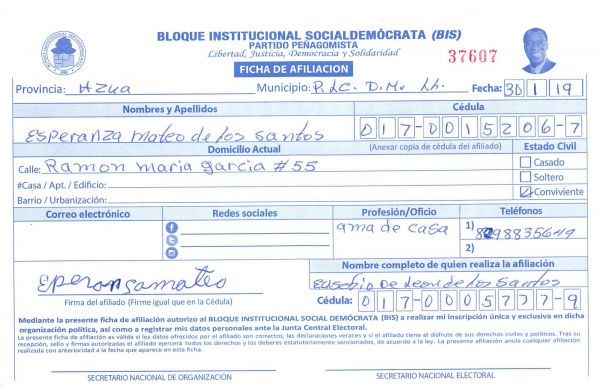 BLOQUE INSTITUCIONAL SOCIALDEMÓCRATA (BIS)
PARTIDO PEÑAGOMISTA
Libertad, Justicia, Democracia y Solidaridad
37607
FICHA DE AFILIACION
Provincia: Azua Municipio: P. Lc. D. M. Ll. Fecha: 30 1 19
Nombres y Apellidos Cédula
Esperanza Mateo de Los Santos 017-0015206-7
Domicilio Actual (Anexar copia de cédula del afiliado) Estado Civil
Calle: Ramon maria garcia #55 Casado
#Casa / Apt. / Edificio: Soltero
Barrio / Urbanización: Conviviente
Correo electrónico Redes sociales Profesión/Oficio Teléfonos
ama de casa 1) 8298835649
2)
Eperansamateo Nombre completo de quien realiza la afiliación
Eusebio De Leon de Los Santos
Firma del afiliado (Firme igual que en la Cédula) Cédula: 017-0005777-9
Mediante la presente ficha de afiliación autorizo al BLOQUE INSTITUCIONAL SOCIAL DEMÓCRATA (BIS) a realizar mi inscripción única y exclusiva en dicha
organización política, así como a registrar mis datos personales ante la Junta Central Electoral.
La presente ficha de afiliación es válida si los datos ofrecidos por el afiliado son correctos, las declaraciones veraces y si el afiliado tiene el disfrute de sus derechos civiles y políticos. Tras su
recepción, sello y firmas autorizadas el afiliado ejercerá todos los derechos y los deberes estatutariamente sancionados, de acuerdo a la ley. La presente afiliación anula cualquier afiliación
realizada con anterioridad a la fecha que aparece en esta ficha.
SECRETARIO NACIONAL DE ORGANIZACIÓN SECRETARIO NACIONAL ELECTORAL